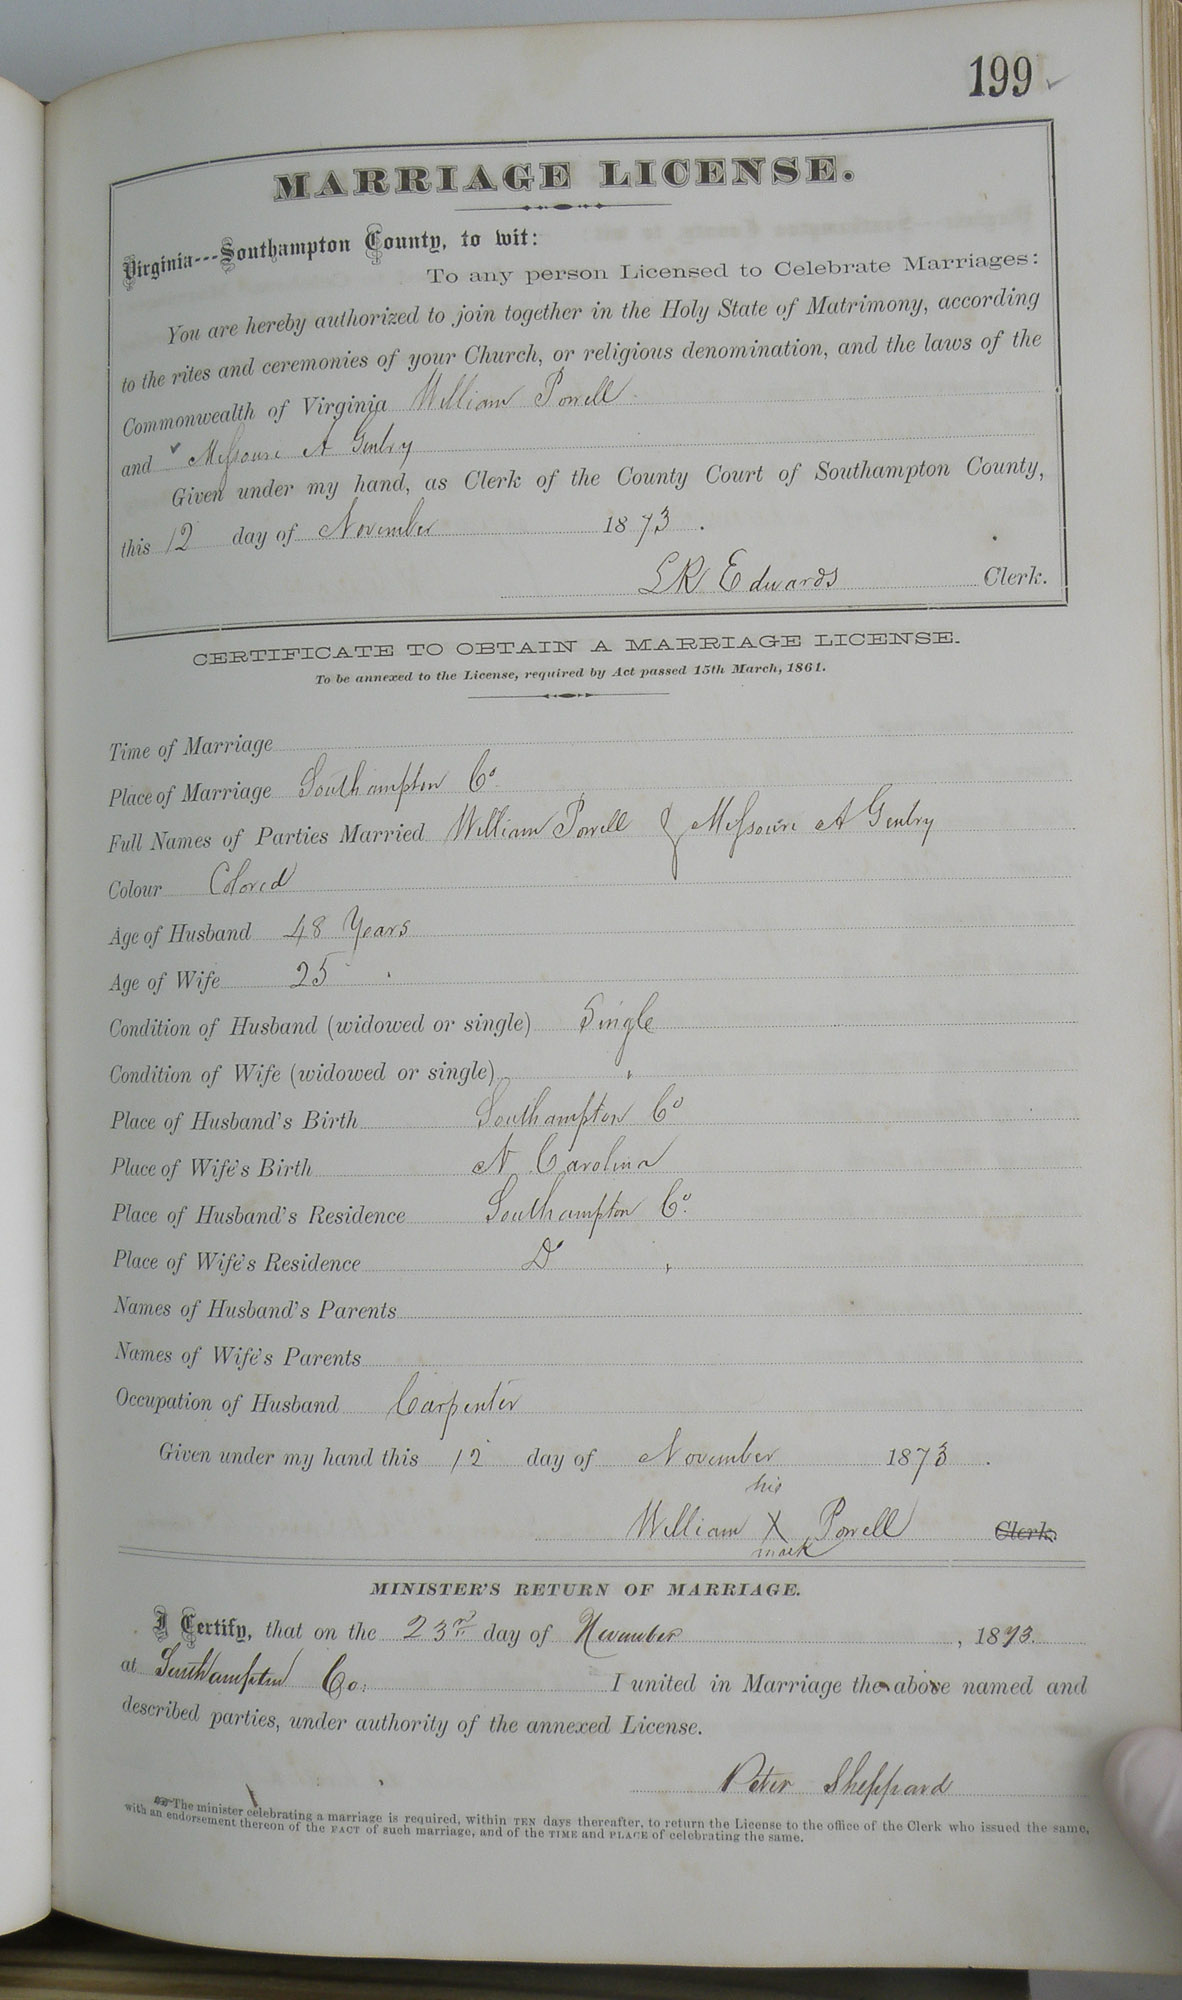 199
MARRIAGE LICENSE.
Virginia---Southampton County, to wit:
To any person Licensed to Celebrate Marriages:
You are hereby authorized to join together in the Holy State of Matrimony, according
to the rites and ceremonies of your Church, or religious denomination, and the laws of the
Commonwealth of Virginia William Powell
and Messouri A Gentry
Given under my hand, as Clerk of the County Court of Southampton County,
this 12 day of November 1873.
LR Edwards Clerk.
CERTIFICATE TO OBTAIN A MARRIAGE LICENSE.
To be annexed to the License, required by Act passed 15th March, 1861.
Time of Marriage
Place of Marriage Southampton Co.
Full Names of Parties Married William Powell & Messouri A Gentry
Colour Colored
Age of Husband 48 Years
Age of Wife 25 "
Condition of Husband (widowed or single) Single
Condition of Wife (widowed or single) "
Place of Husband's Birth Southampton Co
Place of Wife's Birth N Carolina
Place of Husband's Residence Southampton Co.
Place of Wife's Residence Do "
Names of Husband's Parents
Names of Wife's Parents
Occupation of Husband Carpenter
Given under my hand this 12 day of November 1873.
his
William X Powell Clerk.
mark
MINISTER'S RETURN OF MARRIAGE.
I Certify, that on the 23rd day of November, 1873.
at Southampton Co. I united in Marriage the above named and
described parties, under authority of the annexed License.
Peter Sheppard
The minister celebrating a marriage is required, within TEN days thereafter, to return the License to the office of the Clerk who issued the same,
with an endorsement thereon of the FACT of such marriage, and of the TIME and PLACE of celebrating the same.